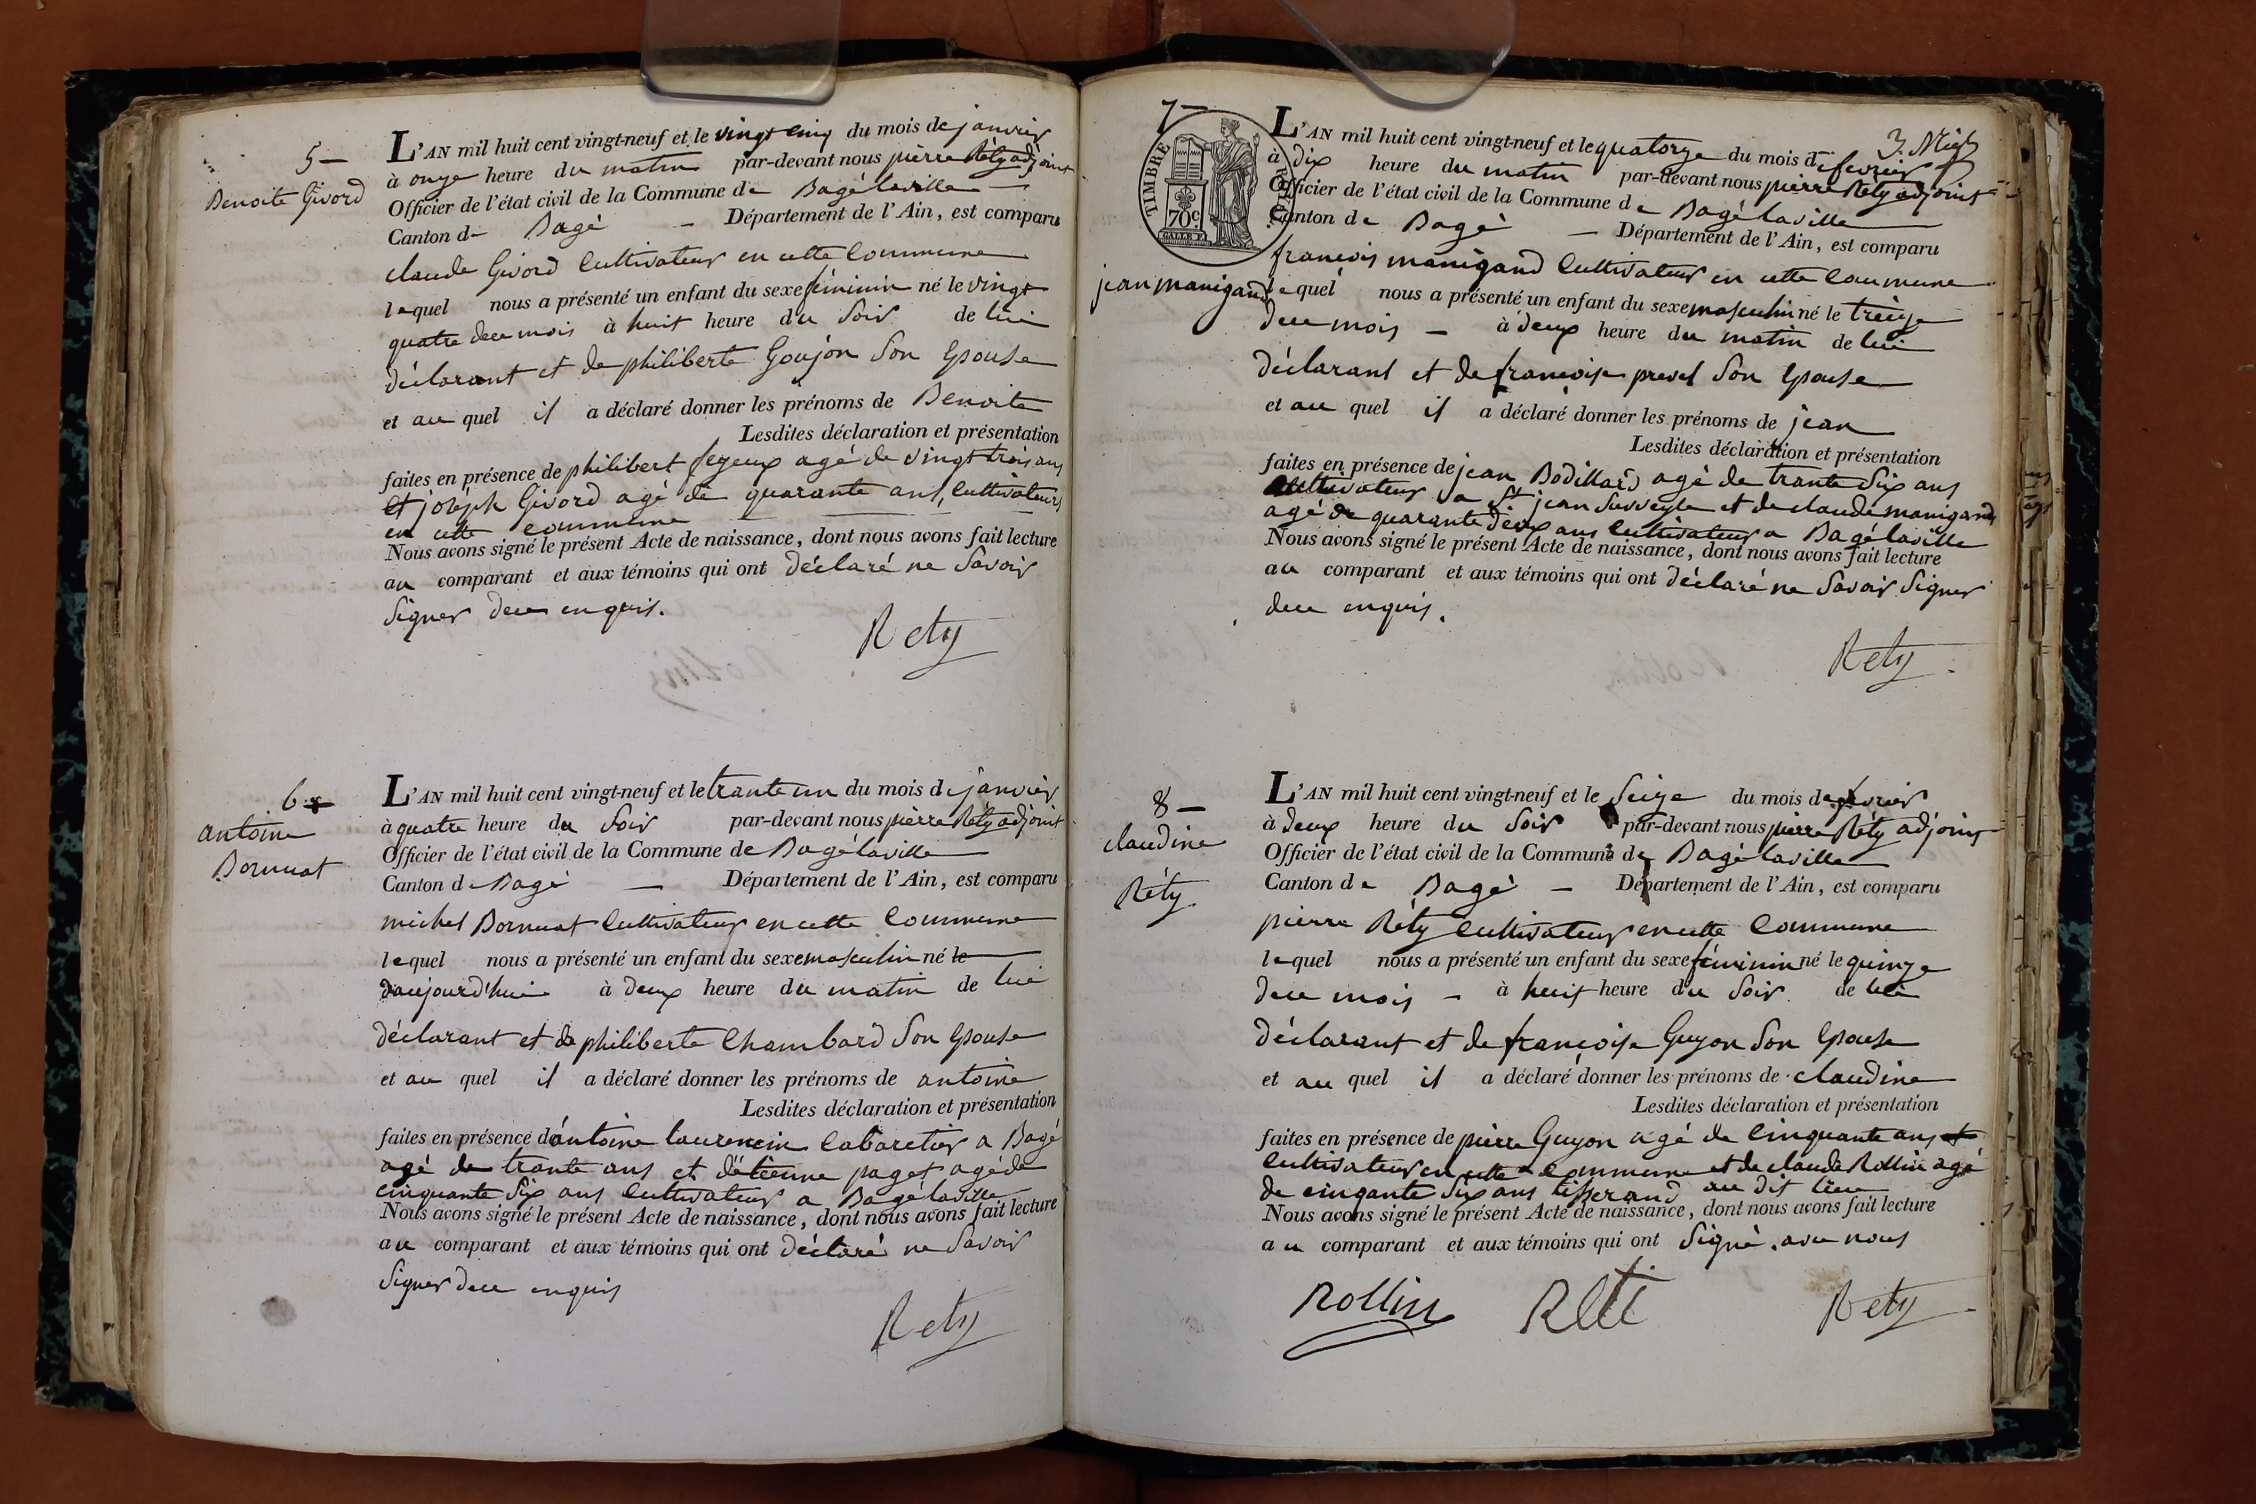 5 —
Benoite Givord
L'AN mil huit cent vingt-neuf et le vingt cinq du mois de janvier
à onze heure du matin par-devant nous pierre Réty adjoint
Officier de l'état civil de la Commune de Bagé laville —
Canton d- Bagé — Département de l'Ain, est comparu
claude Givord Cultivateur en cette Commune
lequel nous a présenté un enfant du sexe féminin né le vingt
quatre duu mois à huit heure du Soir de lui
déclarant et de philiberte Goujon Son Epouse
et au quel il a déclaré donner les prénoms de Benoite
Lesdites déclaration et présentation
faites en présence de philibert feyeux agé de vingt trois ans
et joseph Givord agé de quarante ans, Cultivateurs
en cette commune
Nous avons signé le présent Acte de naissance, dont nous avons fait lecture
au comparant et aux témoins qui ont déclaré ne Savoir
Signer duu enquis.
Rety
6 —
antoine
Bornuat
L'AN mil huit cent vingt-neuf et le trante un du mois de janvier
à quatre heure du Soir par-devant nous pierre Réty adjoint
Officier de l'état civil de la Commune de Bagé laville
Canton de Bagé — Département de l'Ain, est comparu
michel Bornuat Cultivateur en cette Commune
lequel nous a présenté un enfant du sexe masculin né le
d'aujourd'hui à deux heure du matin de lui
déclarant et de philiberte Chambard Son Epouse
et au quel il a déclaré donner les prénoms de antoine
Lesdites déclaration et présentation
faites en présence d'antoine laurencin Cabaretier a Bagé
agé de trante ans et d'étienne paget agé de
cinquante Six ans Cultivateur a Bagé laville
Nous avons signé le présent Acte de naissance, dont nous avons fait lecture
au comparant et aux témoins qui ont déclaré ne Savoir
Signer duu enquis
Rety
7 —
TIMBRE ROYAL
70c
jean manigand
L'AN mil huit cent vingt-neuf et le quatorze du mois de fevrier
à dix heure du matin par-devant nous pierre Réty adjoint
Officier de l'état civil de la Commune de Bagé laville
Canton de Bagé — Département de l'Ain, est comparu
francois manigand Cultivateur en cette Commune
lequel nous a présenté un enfant du sexe masculin né le treize
duu mois — à deux heure du matin de lui
déclarant et de francoise prevel Son Epouse
et au quel il a déclaré donner les prénoms de jean
Lesdites déclaration et présentation
faites en présence de jean Bodillard agé de trante Six ans
Cultivateur a St jean Surveyle et de claude manigand
agé de quarante deux ans Cultivateur a Bagé laville
Nous avons signé le présent Acte de naissance, dont nous avons fait lecture
au comparant et aux témoins qui ont déclaré ne Savoir Signer
duu enquis.
Rety
8 —
claudine
Réty
L'AN mil huit cent vingt-neuf et le Seize du mois de fevrier
à deux heure du Soir par-devant nous pierre Réty adjoint
Officier de l'état civil de la Commune de Bagé laville
Canton de Bagé — Département de l'Ain, est comparu
pierre Réty Cultivateur en cette Commune
lequel nous a présenté un enfant du sexe féminin né le quinze
duu mois — à huit heure du Soir de lui
déclarant et de françoise Guyon Son Epouse
et au quel il a déclaré donner les prénoms de claudine
Lesdites déclaration et présentation
faites en présence de pierre Guyon agé de Cinquante ans et
Cultivateur en cette Commune et de claude Rollin agé
de cinqante Six ans tisserand au dit lieu
Nous avons signé le présent Acte de naissance, dont nous avons fait lecture
au comparant et aux témoins qui ont Signé. avu nous
Rollin Reti Rety